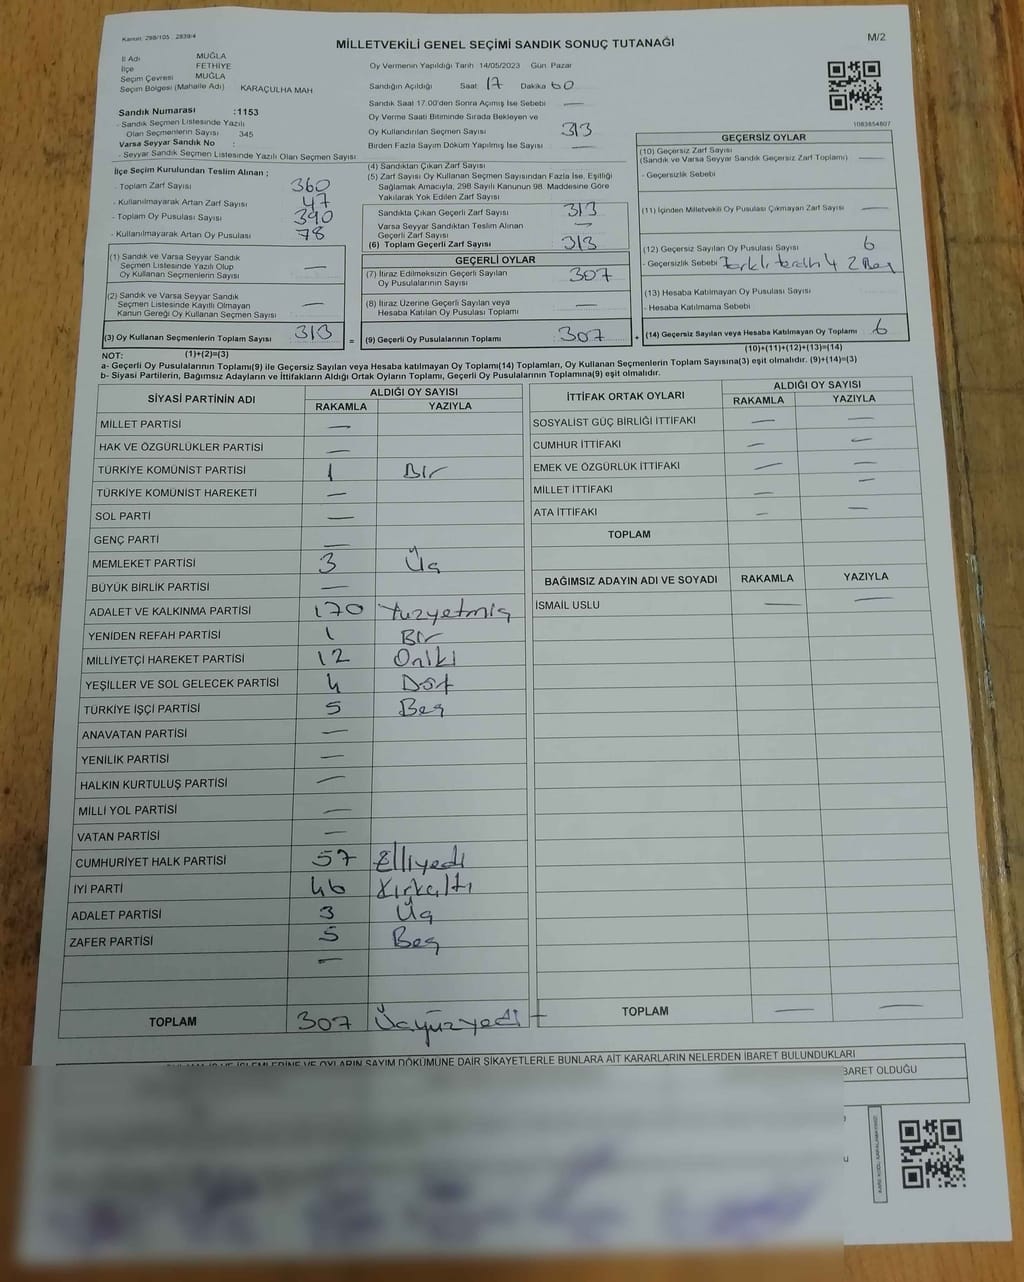 Kanun: 298/105 2839/4
MİLLETVEKİLİ GENEL SEÇİMİ SANDIK SONUÇ TUTANAĞI
M/2
İl Adı MUĞLA
İlçe FETHİYE
Seçim Çevresi MUĞLA
Seçim Bölgesi (Mahalle Adı) KARAÇULHA MAH
Sandık Numarası :1153
- Sandık Seçmen Listesinde Yazılı
Olan Seçmenlerin Sayısı 345
Varsa Seyyar Sandık No :
- Seyyar Sandık Seçmen Listesinde Yazılı Olan Seçmen Sayısı
Oy Vermenin Yapıldığı Tarih 14/05/2023 Gün Pazar
Sandığın Açıldığı Saat 17 Dakika 60
Sandık Saat 17.00'den Sonra Açımış İse Sebebi —
Oy Verme Saati Bitiminde Sırada Bekleyen ve
Oy Kullandırılan Seçmen Sayısı 313
Birden Fazla Sayım Döküm Yapılmış İse Sayısı —
1083854807
İlçe Seçim Kurulundan Teslim Alınan ;
- Toplam Zarf Sayısı 360
- Kullanılmayarak Artan Zarf Sayısı 47
- Toplam Oy Pusulası Sayısı 390
- Kullanılmayarak Artan Oy Pusulası 78
(1) Sandık ve Varsa Seyyar Sandık
Seçmen Listesinde Yazılı Olup
Oy Kullanan Seçmenlerin Sayısı —
(2) Sandık ve Varsa Seyyar Sandık
Seçmen Listesinde Kayıtlı Olmayan
Kanun Gereği Oy Kullanan Seçmen Sayısı —
(3) Oy Kullanan Seçmenlerin Toplam Sayısı 313 =
(1)+(2)=(3)
(4) Sandıktan Çıkan Zarf Sayısı
(5) Zarf Sayısı Oy Kullanan Seçmen Sayısından Fazla İse, Eşitliği
Sağlamak Amacıyla, 298 Sayılı Kanunun 98. Maddesine Göre
Yakılarak Yok Edilen Zarf Sayısı
Sandıkta Çıkan Geçerli Zarf Sayısı 313
Varsa Seyyar Sandıktan Teslim Alınan
Geçerli Zarf Sayısı —
(6) Toplam Geçerli Zarf Sayısı 313
GEÇERLİ OYLAR
(7) İtiraz Edilmeksizin Geçerli Sayılan
Oy Pusulasının Sayısı 307
(8) İtiraz Üzerine Geçerli Sayılan veya
Hesaba Katılan Oy Pusulası Toplamı —
(9) Geçerli Oy Pusulalarının Toplamı 307 +
GEÇERSİZ OYLAR
(10) Geçersiz Zarf Sayısı
(Sandık ve Varsa Seyyar Sandık Geçersiz Zarf Toplamı) —
- Geçersizlik Sebebi
(11) İçinden Milletvekili Oy Pusulası Çıkmayan Zarf Sayısı —
(12) Geçersiz Sayılan Oy Pusulası Sayısı 6
- Geçersizlik Sebebi
(13) Hesaba Katılmayan Oy Pusulası Sayısı
- Hesaba Katılmama Sebebi
(14) Geçersiz Sayılan veya Hesaba Katılmayan Oy Toplamı 6
(10)+(11)+(12)+(13)=(14)
NOT:
a- Geçerli Oy Pusulalarının Toplamı(9) ile Geçersiz Sayılan veya Hesaba katılmayan Oy Toplamı(14) Toplamları, Oy Kullanan Seçmenlerin Toplam Sayısına(3) eşit olmalıdır. (9)+(14)=(3)
b- Siyasi Partilerin, Bağımsız Adayların ve İttifakların Aldığı Ortak Oyların Toplamı, Geçerli Oy Pusulalarının Toplamına(9) eşit olmalıdır.
SİYASİ PARTİNİN ADI
ALDIĞI OY SAYISI
RAKAMLA YAZIYLA
MİLLET PARTİSİ —
HAK VE ÖZGÜRLÜKLER PARTİSİ —
TÜRKİYE KOMÜNİST PARTİSİ 1 Bir
TÜRKİYE KOMÜNİST HAREKETİ —
SOL PARTİ —
GENÇ PARTİ —
MEMLEKET PARTİSİ 3 Üç
BÜYÜK BİRLİK PARTİSİ —
ADALET VE KALKINMA PARTİSİ 170 Yüzyetmiş
YENİDEN REFAH PARTİSİ 1 Bir
MİLLİYETÇİ HAREKET PARTİSİ 12 Oniki
YEŞİLLER VE SOL GELECEK PARTİSİ 4 Döt
TÜRKİYE İŞÇİ PARTİSİ 5 Beş
ANAVATAN PARTİSİ —
YENİLİK PARTİSİ —
HALKIN KURTULUŞ PARTİSİ —
MİLLİ YOL PARTİSİ —
VATAN PARTİSİ —
CUMHURİYET HALK PARTİSİ 57 Elliyedi
İYİ PARTİ 46 Kırkaltı
ADALET PARTİSİ 3 Üç
ZAFER PARTİSİ 5 Beş
—
TOPLAM 307 Üçyüzyedi
İTTİFAK ORTAK OYLARI
ALDIĞI OY SAYISI
RAKAMLA YAZIYLA
SOSYALİST GÜÇ BİRLİĞİ İTTİFAKI — —
CUMHUR İTTİFAKI — —
EMEK VE ÖZGÜRLÜK İTTİFAKI — —
MİLLET İTTİFAKI — —
ATA İTTİFAKI — —
TOPLAM
BAĞIMSIZ ADAYIN ADI VE SOYADI RAKAMLA YAZIYLA
İSMAİL USLU — —
TOPLAM — —
OYLARIN SAYIM DÖKÜMÜNE DAİR ŞİKAYETLERLE BUNLARA AİT KARARLARIN NELERDEN İBARET BULUNDUKLARI
İBARET OLDUĞU